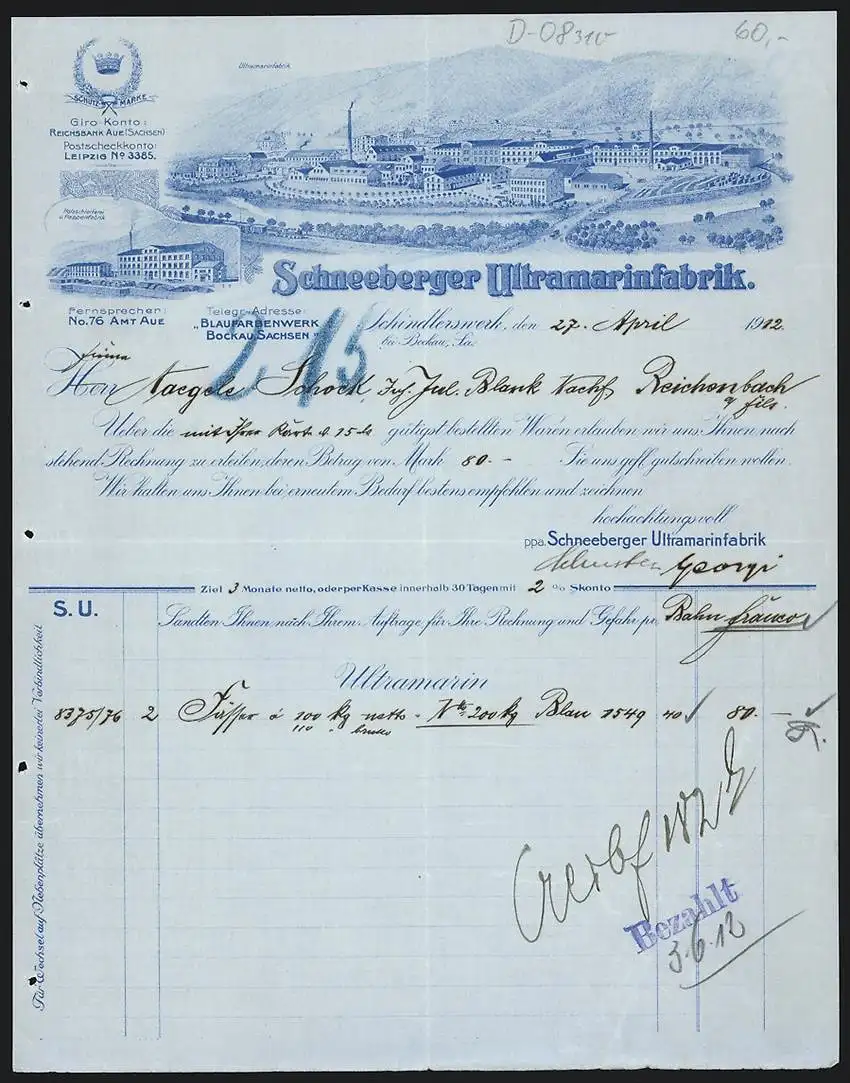 D-08310
60,-
SCHUTZ MARKE
Ultramarinfabrik
Giro Konto:
REICHSBANK AUE (SACHSEN)
Postscheckkonto:
LEIPZIG No 3385.
Holzschleiferei
u. Pappenfabrik
Schneeberger Ultramarinfabrik.
Fernsprecher:
No. 76 AMT AUE
Telegr.-Adresse:
„BLAUFARBENWERK
BOCKAU, SACHSEN"
2.15
Schindlerswerk, den 27. April 1912.
bei Bockau, Sa.
Firma
Herrn Naegele Schoch, Jul. Blank Nachf Reichenbach
a/ Fils.
Ueber die mit Ihrer Karte d. 15 ds gütigst bestellten Waren erlauben wir uns, Ihnen nach
stehend Rechnung zu erteilen, deren Betrag von Mark 80.- Sie uns gefl. gutschreiben wollen.
Wir halten uns Ihnen bei erneutem Bedarf bestens empfohlen und zeichnen
hochachtungsvoll
ppa. Schneeberger Ultramarinfabrik
Georgi
Ziel 3 Monate netto, oder per Kasse innerhalb 30 Tagen mit 2 % Skonto
S. U.
Sandten Ihnen nach Ihrem Auftrage, für Ihre Rechnung und Gefahr pr. Bahn franco
Ultramarin
8375/76 2 Fässer à 100 kg netto = 200 kg Blau 1549 40 80. -
110 " brutto
Bezahlt
3.6.12
Für Wechsel auf Nebenplätze übernehmen wir keinerlei Verbindlichkeit